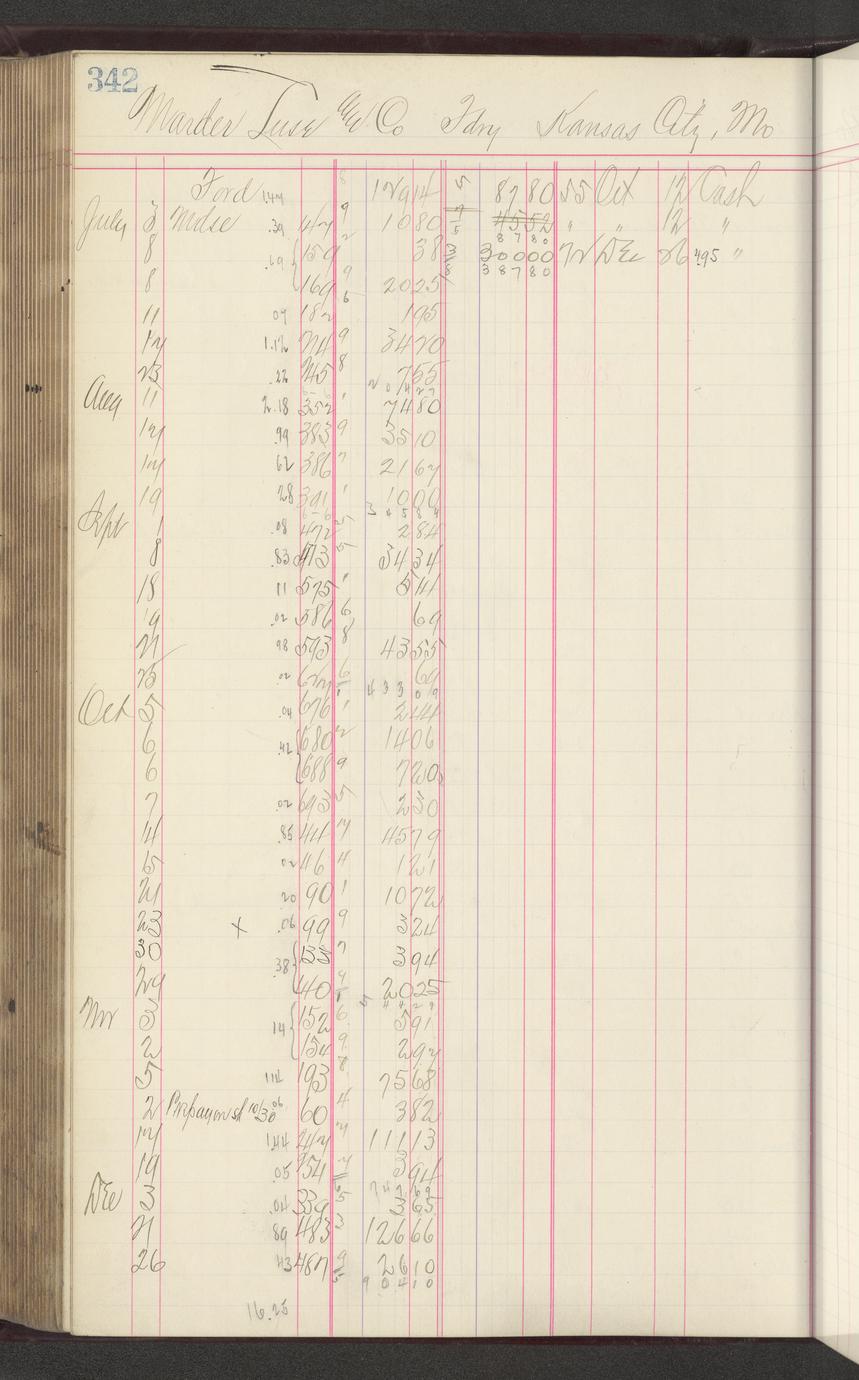 342
Marder Luse & Co Fdry Kansas City, Mo
Ford 1.44 8 12914 5 8780 55 Oct 12 Cash
July 3 Mdse .39 47 9 1080 4552 " " 12 "
8 .69 159 2 38 8780 30000 72 Dec 26 495 "
8 169 9 2025 38780
11 07 182 6 195
14 1.12 214 9 3470
23 .22 245 8 755
20427
Aug 11 2.18 352 1 7480
14 .99 383 9 3510
14 62 386 7 2164
19 28 391 1 1000
34584
Sept 1 .08 472 5 284
8 .83 473 5 3434
18 11 575 1 544
19 .02 586 6 69
21 98 593 8 4355
25 .02 6 69
43309
Oct 5 .04 676 1 244
6 .42 680 2 1406
6 688 9 720
7 .02 693 5 230
14 .85 44 4579
15 02 46 4 121
21 20 90 1 1072
23 x .06 99 9 324
30 .38 133 7 394
29 40 9 2025
Nov 3 14 152 6 591
2 154 9 294
5 114 193 8 7568
2 Prepaym st 10/30 06 60 4 382
14 144 247 11113
19 .05 254 394
74769
Dec 3 .04 339 5 365
21 89 483 3 12666
26 43 487 9 2610
90410
16.25